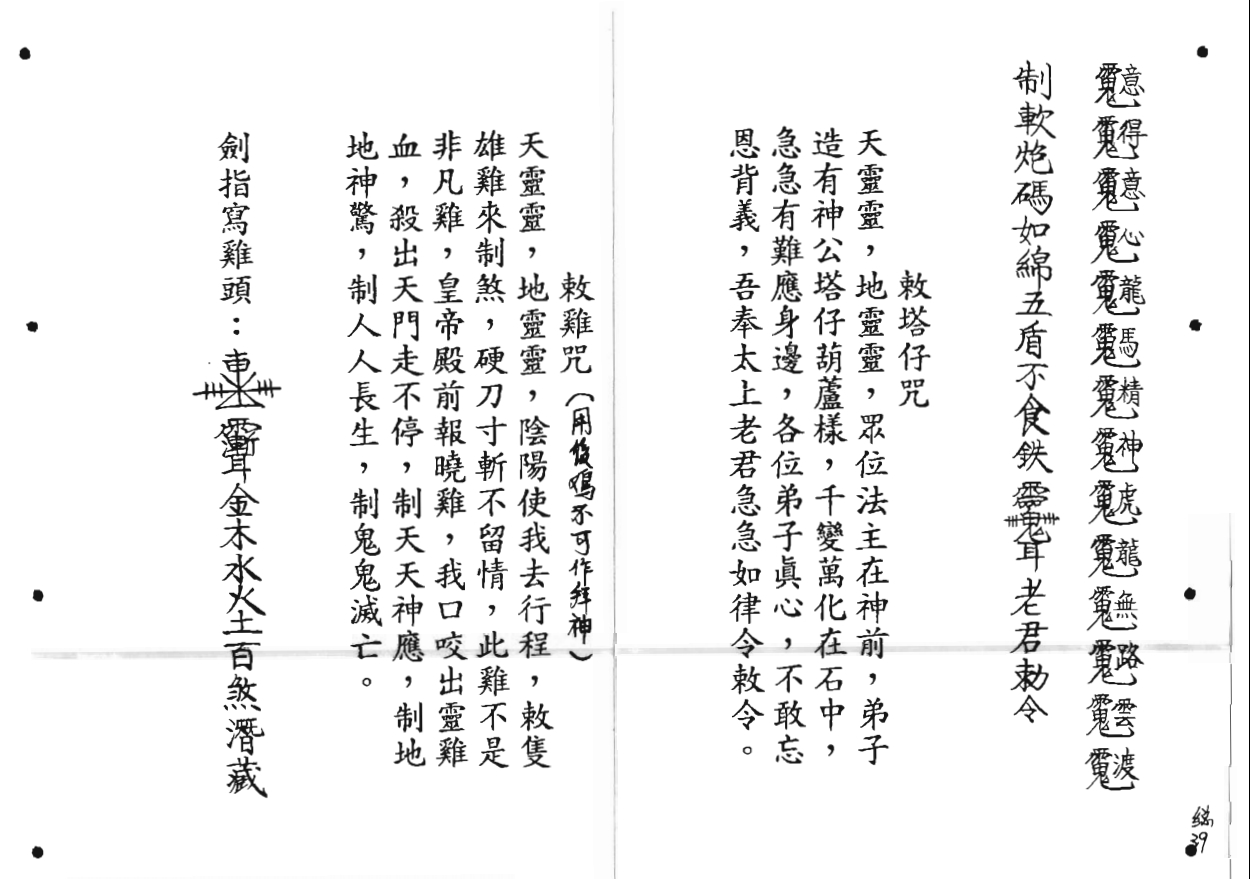 意得意心龍馬精神虎龍無路雲渡
制軟炮碼如綿五盾不食鉄耳老君勅令
敕塔仔咒
天靈靈，地靈靈，眾位法主在神前，弟子
造有神公塔仔葫蘆樣，千變萬化在石中，
急急有難應身邊，各位弟子眞心，不敢忘
恩背義，吾奉太上老君急急如律令敕令。
敕雞咒（用後鳴不可作拜神）
天靈靈，地靈靈，陰陽使我去行程，敕隻
雄雞來制煞，硬刀寸斬不留情，此雞不是
非凡雞，皇帝殿前報曉雞，我口咬出靈雞
血，殺出天門走不停，制天天神應，制地
地神驚，制人人長生，制鬼鬼滅亡。
劍指寫雞頭：耳金木水火土百煞潛藏
總39